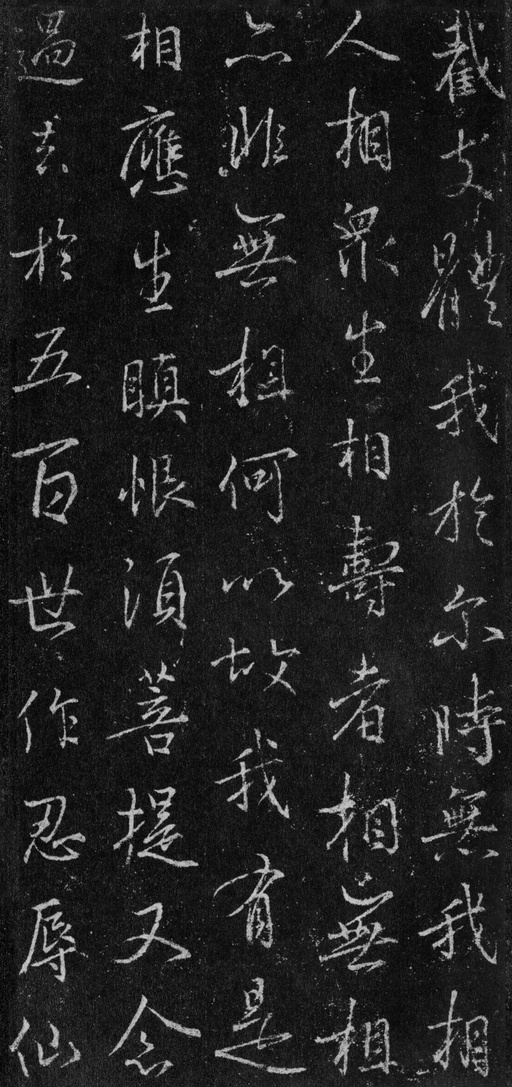 截支體我於尔時無我相
人相眾生相壽者相無相
亦非無相何以故我有是
相應生瞋恨須菩提又念
過去於五百世作忍辱仙